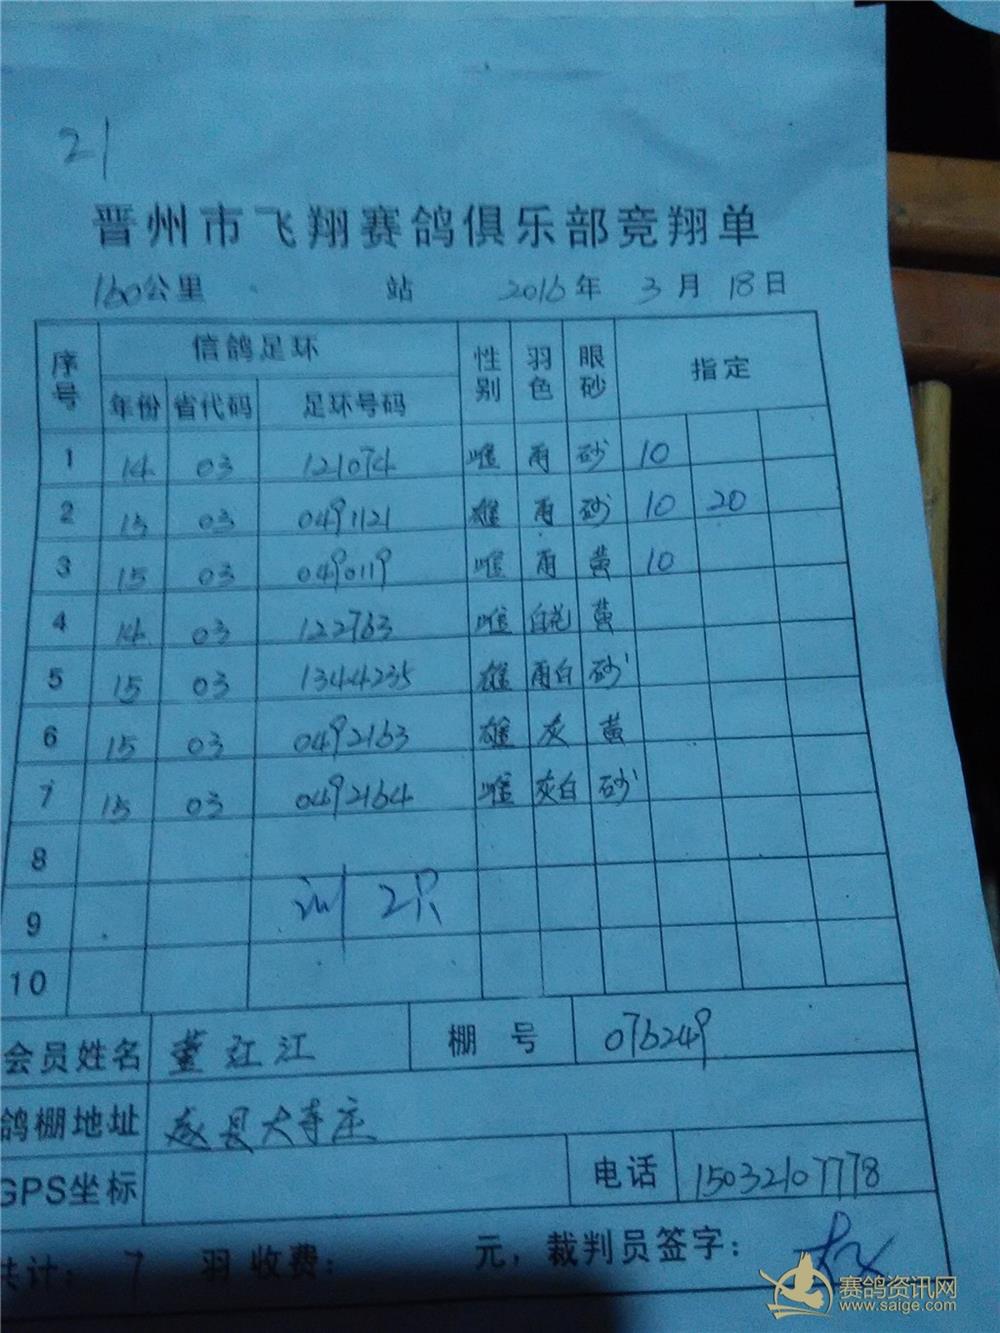 21
晋州市飞翔赛鸽俱乐部竞翔单
160公里 站 2016年 3月 18日
序号 信鸽足环 性别 羽色 眼砂 指定
年份 省代码 足环号码
1 14 03 121074 雌 雨 砂 10
2 15 03 0491121 雄 雨 砂 10 20
3 15 03 0490119 雌 雨 黄 10
4 14 03 122763 雌 白花 黄
5 15 03 1344235 雄 雨白 砂
6 15 03 0492163 雄 灰 黄
7 15 03 0492164 雌 灰白 砂
8
9 训 2只
10
会员姓名 董红江 棚号 076249
鸽棚地址 县大寺庄
GPS坐标 电话 15032107778
共计: 7 羽 收费: 元, 裁判员签字:
赛鸽资讯网
www.saige.com